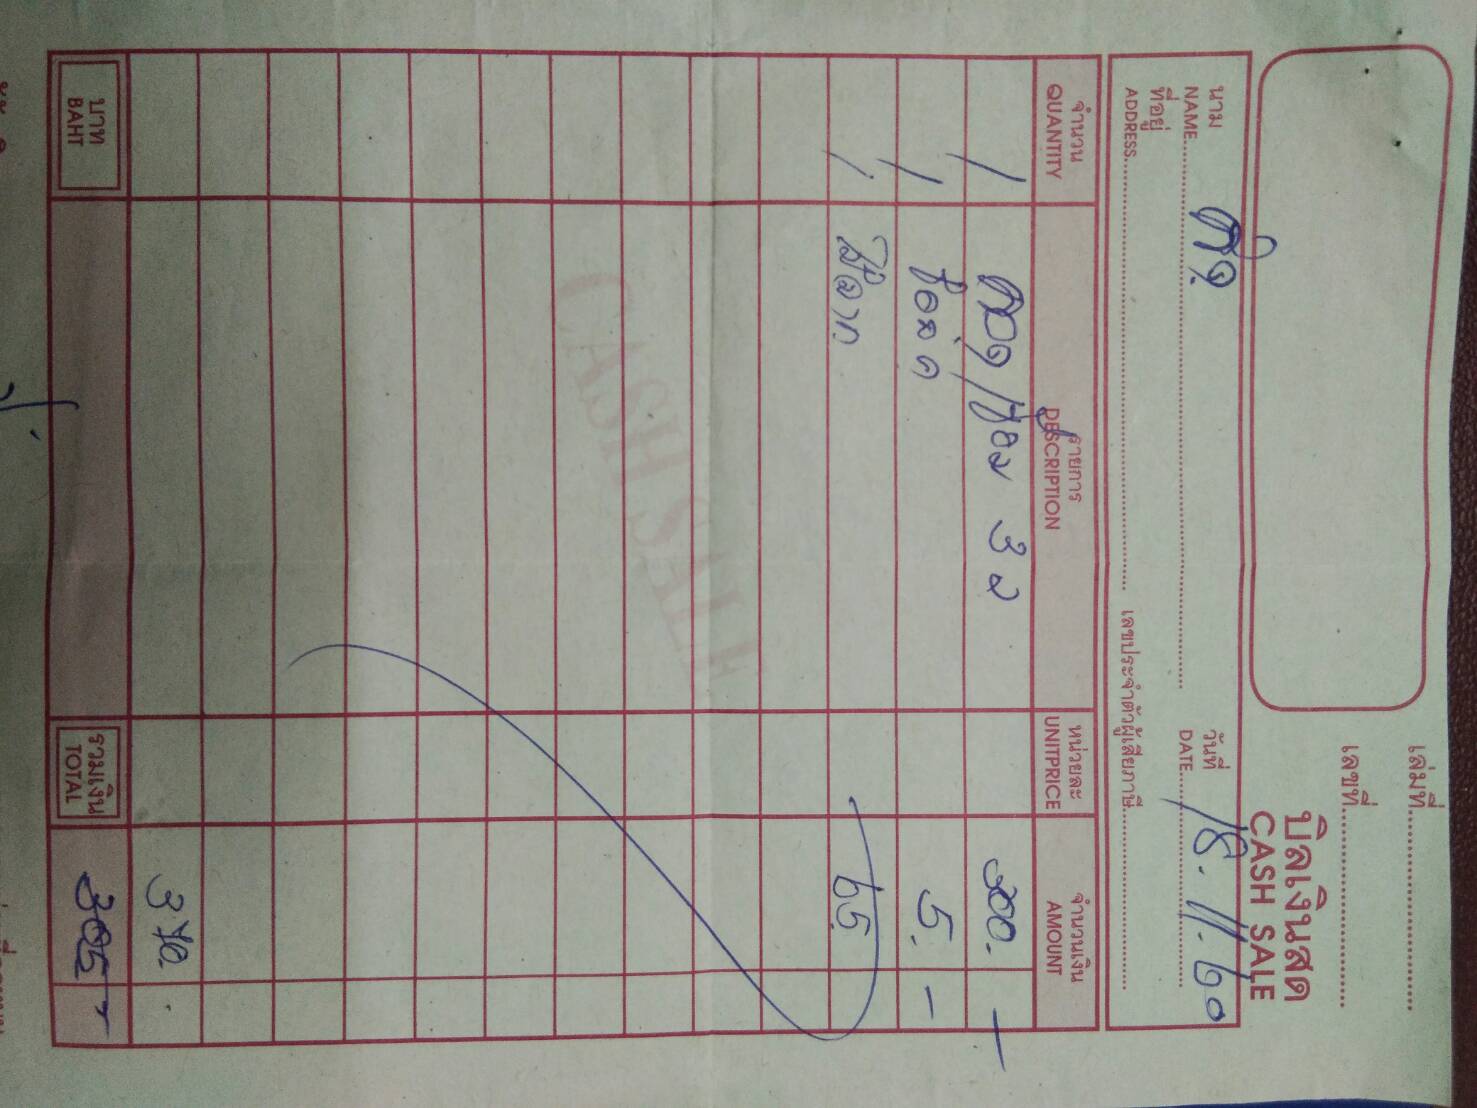 เล่มที่
เลขที่
บิลเงินสด
CASH SALE
นาม
NAME
วันที่ 18.11.60
DATE
ที่อยู่
ADDRESS
เลขประจำตัวผู้เสียภาษี
จำนวน
QUANTITY
รายการ
DESCRIPTION
หน่วยละ
UNITPRICE
จำนวนเงิน
AMOUNT
1 300.-
1 5.-
1 65.
CASH SALE
370.
บาท
BAHT
รวมเงิน
TOTAL
305